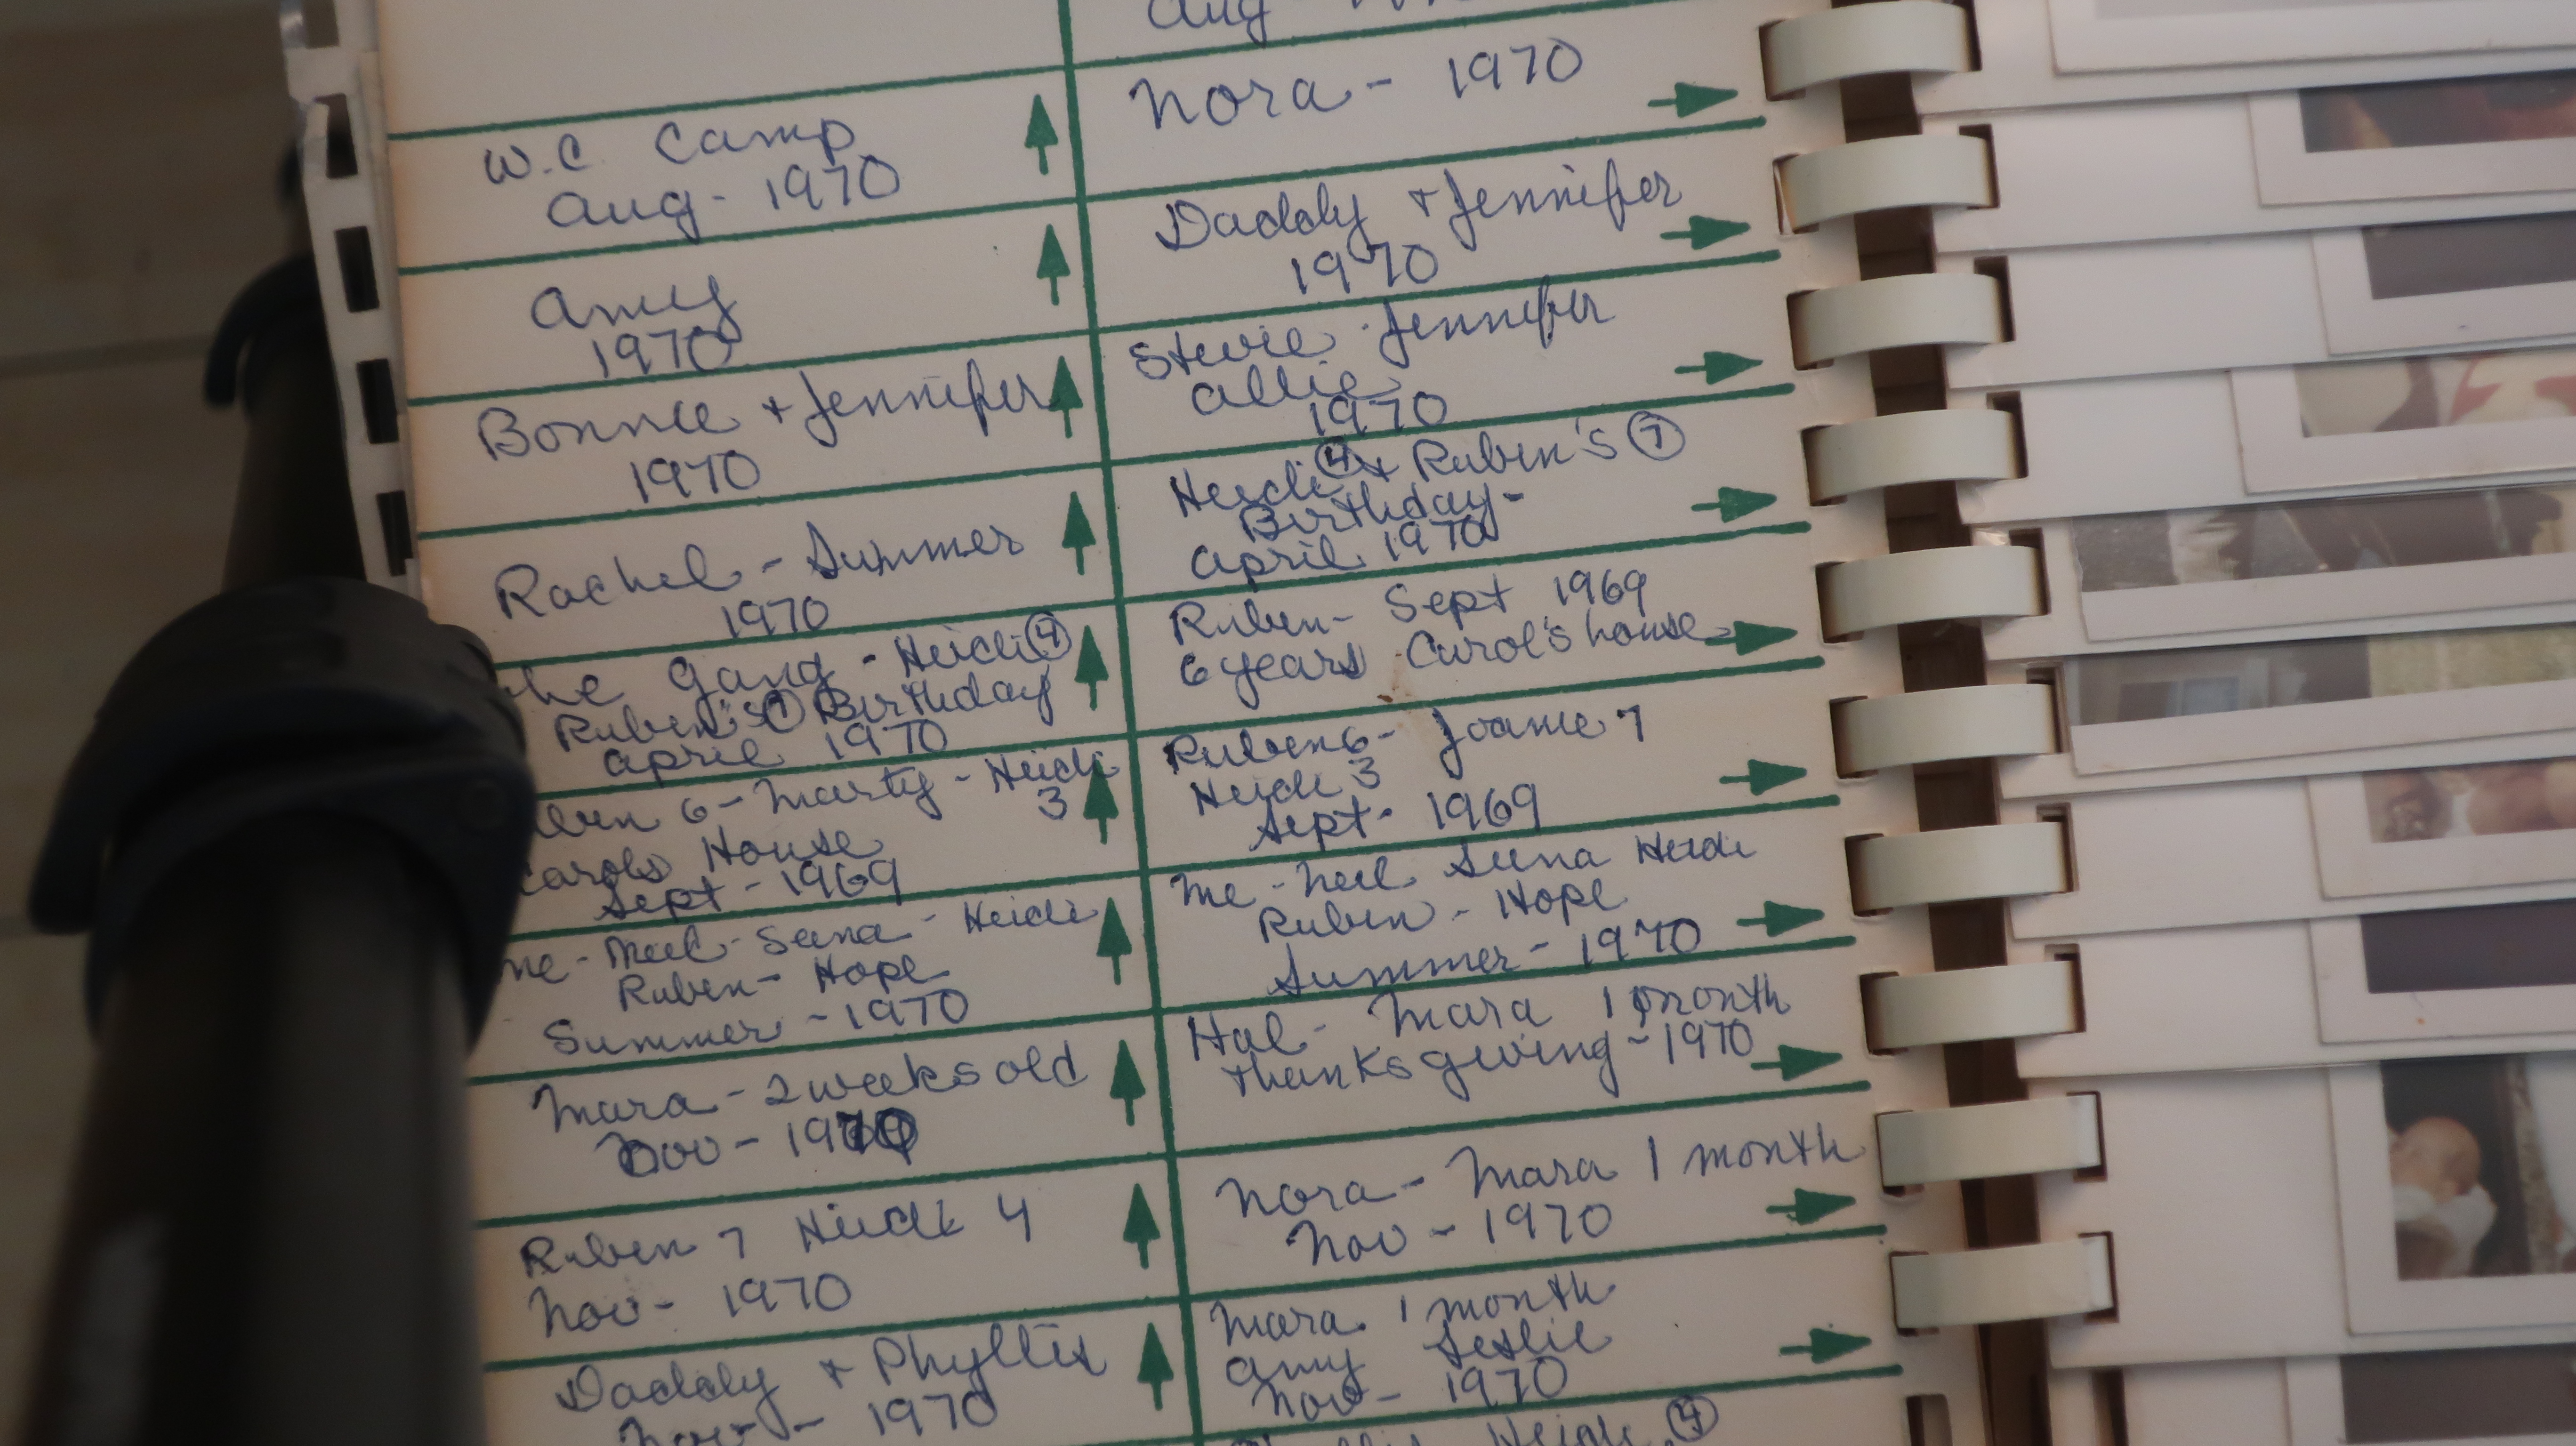 W.C Camp
Aug - 1970
Amy
1970
Bonnie + Jennifer
1970
Rachel - Summer
1970
he gang - Heidi 4
Ruben's 7 Birthday
April 1970
6 - Marty - Heidi
3
Carols House
Sept - 1969
me - Neil - Seena - Heidi
Ruben - Hope
Summer - 1970
Mara - 2 weeks old
Nov - 1970
Ruben 7 Heidi 4
Nov - 1970
Daddy + Phyllis
Nov - 1970
Aug
Nora - 1970
Daddy + Jennifer
1970
Stevie Jennifer
Allie
1970
Heidi 4 + Ruben's 7
Birthday -
April 1970
Ruben - Sept 1969
6 years Carol's house
Ruben 6 - Joanie 7
Heidi 3
Sept - 1969
Me - Neil Seena Heidi
Ruben - Hope
Summer - 1970
Hal - Mara 1 month
Thanksgiving - 1970
Nora - Mara 1 month
Nov - 1970
Mara 1 month
Amy Leslie
Nov - 1970
Heidi 4